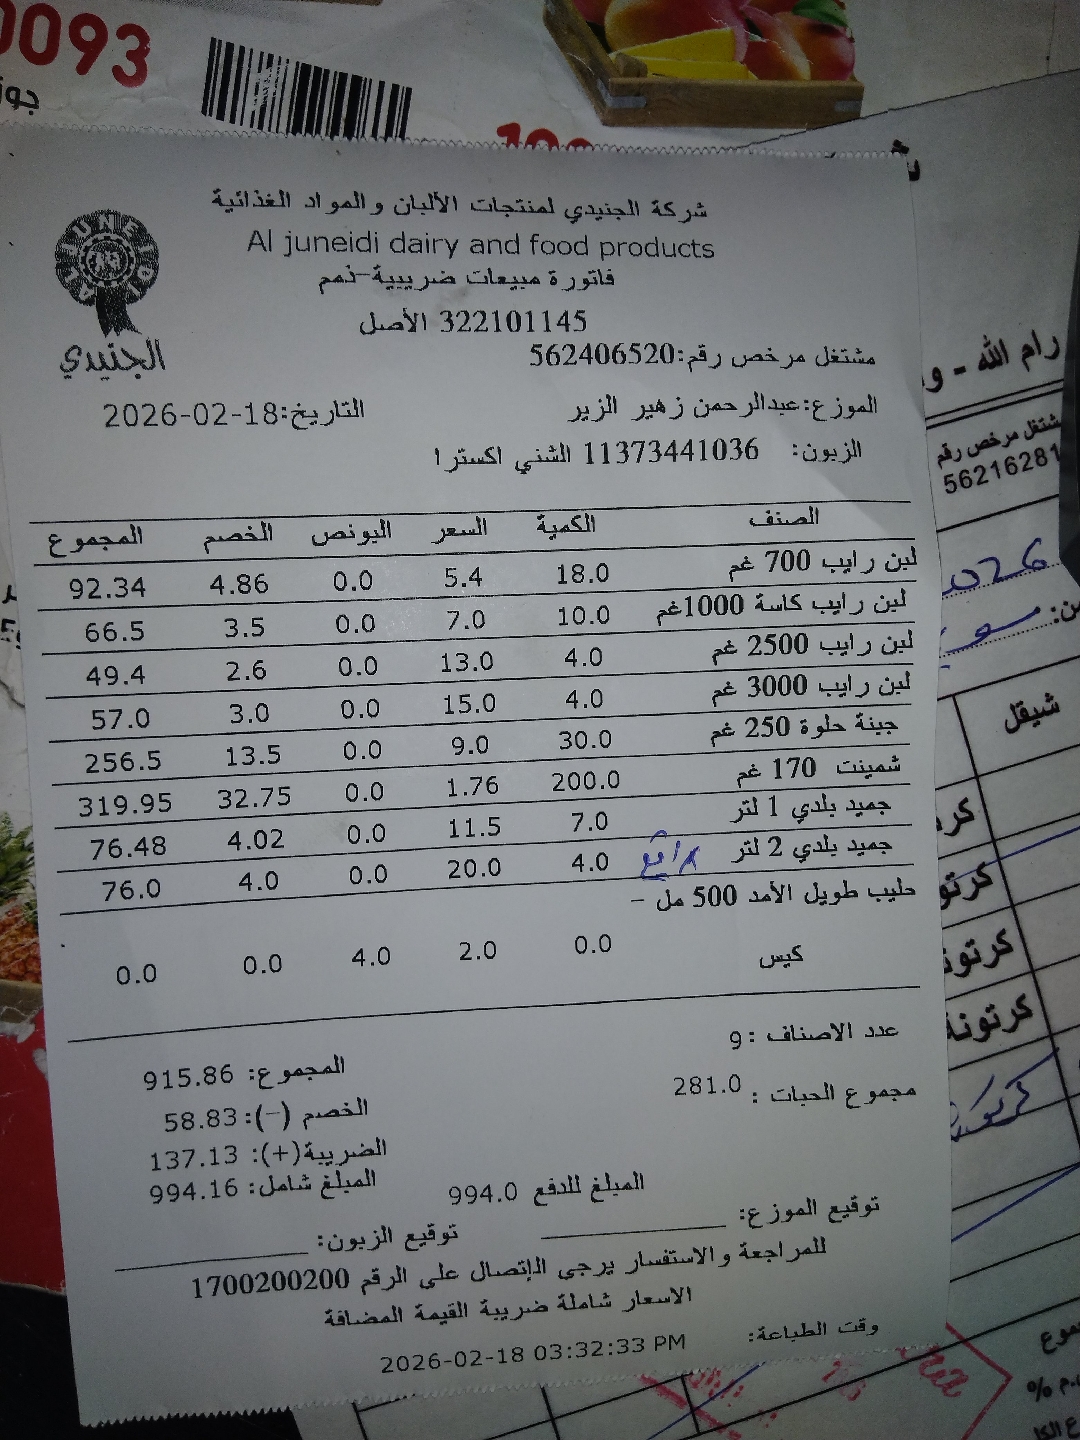 0093
جوز
شركة الجنيدي لمنتجات الألبان والمواد الغذائية
Al juneidi dairy and food products
فاتورة مبيعات ضريبية-ذمم
AL JUNEIDI
الجنيدي
322101145 الأصل
مشتغل مرخص رقم:562406520
الموزع:عبدالرحمن زهير الزير التاريخ:2026-02-18
الزبون: 11373441036 الشني اكسترا
الصنف الكمية السعر البونص الخصم المجموع
لبن رايب 700 غم 18.0 5.4 0.0 4.86 92.34
لبن رايب كاسة 1000غم 10.0 7.0 0.0 3.5 66.5
لبن رايب 2500 غم 4.0 13.0 0.0 2.6 49.4
لبن رايب 3000 غم 4.0 15.0 0.0 3.0 57.0
جبنة حلوة 250 غم 30.0 9.0 0.0 13.5 256.5
شمينت 170 غم 200.0 1.76 0.0 32.75 319.95
جميد بلدي 1 لتر 7.0 11.5 0.0 4.02 76.48
جميد بلدي 2 لتر 4.0 20.0 0.0 4.0 76.0
حليب طويل الأمد 500 مل -
كيس 0.0 2.0 4.0 0.0 0.0
عدد الاصناف :9
المجموع: 915.86
مجموع الحبات : 281.0
الخصم (-): 58.83
الضريبة(+): 137.13
المبلغ شامل: 994.16
المبلغ للدفع 994.0
توقيع الموزع:
توقيع الزبون:
للمراجعة والاستفسار يرجى الإتصال على الرقم 1700200200
الاسعار شاملة ضريبة القيمة المضافة
وقت الطباعة: 2026-02-18 03:32:33 PM
رام الله - و
مشتغل مرخص رقم
56216281
2026
من:
شيقل
كر
كرتو
كرتون
كرتونة